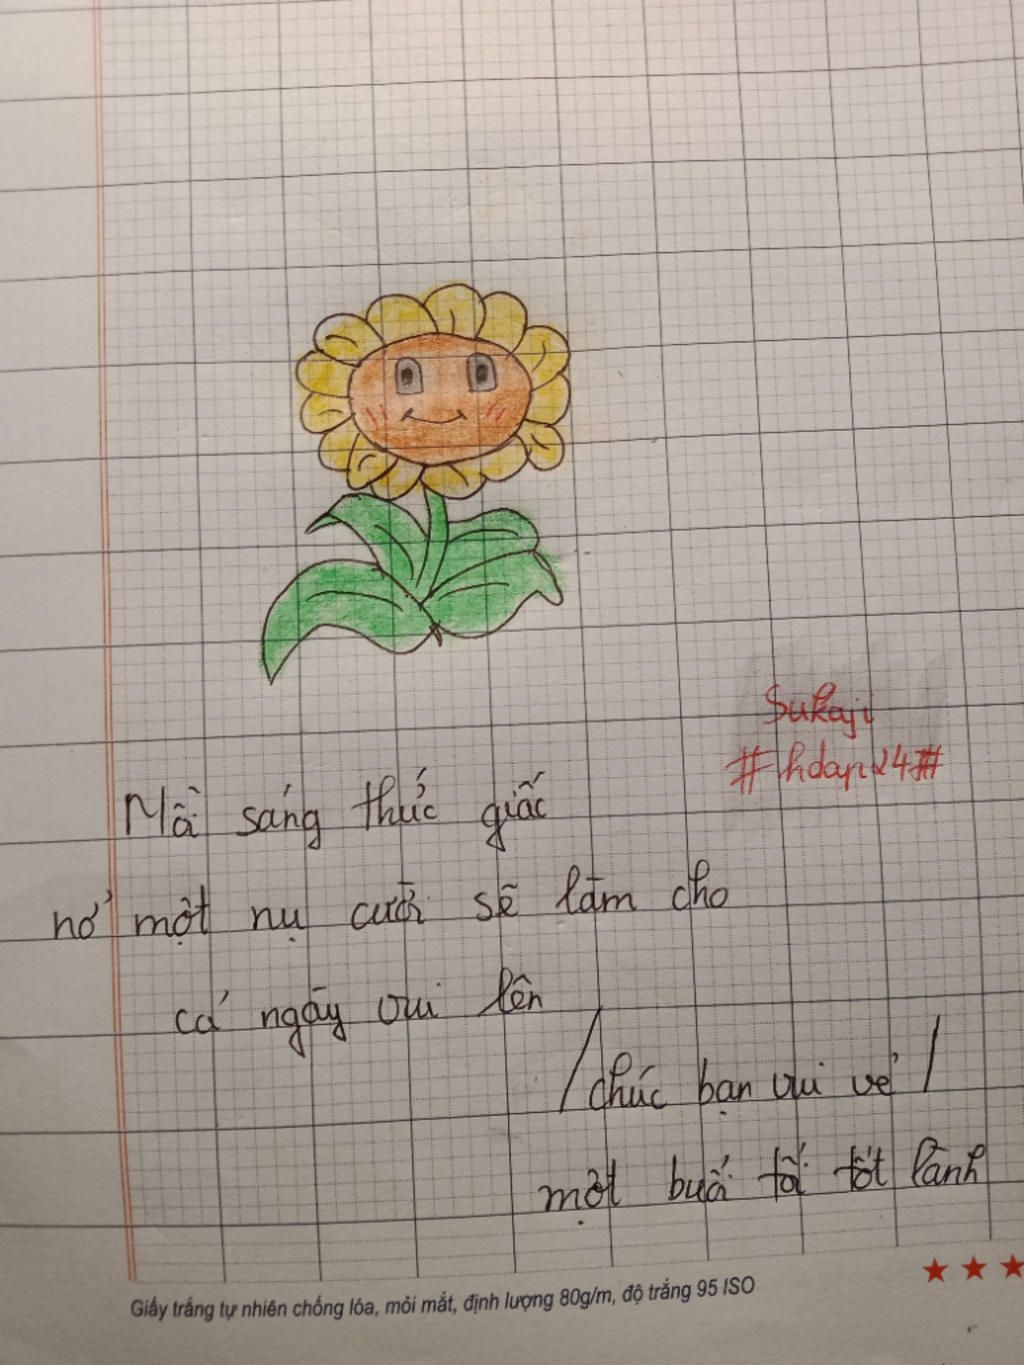 Sukaji
#hdap24#
Mỗi sáng thức giấc
nở một nụ cười sẽ làm cho
cả ngày vui lên
/chúc bạn vui vẻ/
một buổi tối tốt lành
Giấy trắng tự nhiên chống lóa, mỏi mắt, định lượng 80g/m, độ trắng 95 ISO